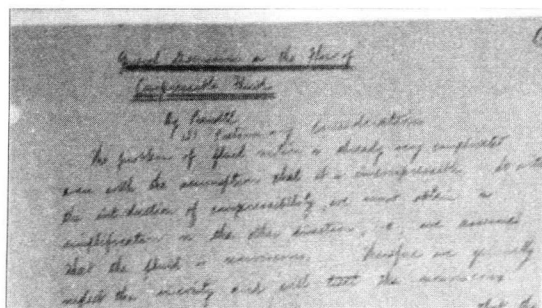 General Discussion on the Flow of
Compressible Fluids
By Prandtl
(1) Preliminary Considerations
The problem of fluid motion is already very complicated
even with the assumption that it is incompressible.
the introduction of compressibility, we must obtain a
simplification in the other direction, we assumed
that the fluid is nonviscous. Therefore we generally
neglect the viscosity and will treat the nonviscous
that the